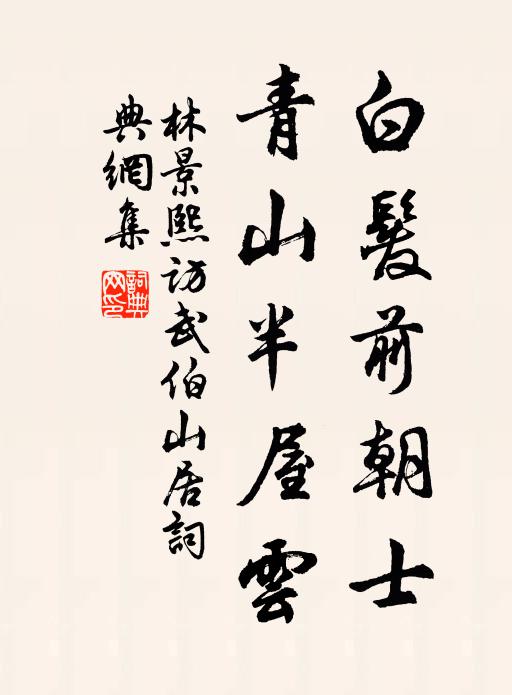 白髮前朝士
青山半屋雲
林景熙訪武伯山居詞
典網集
詞典網印